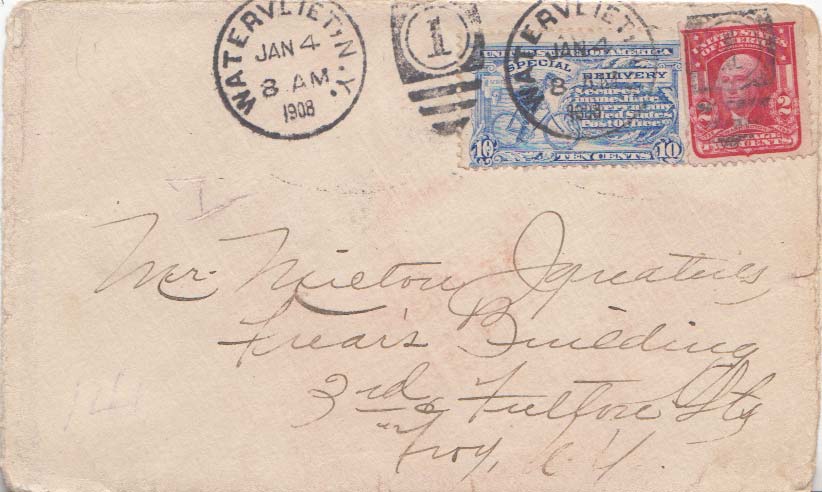 WATERVLIET, N.Y.
JAN 4
8 AM
1908
1
WATERVLIET,
JAN 4
8
UNITED STATES OF AMERICA
SPECIAL DELIVERY
Secures
immediate
delivery at any
United States
Post office
10 TEN CENTS 10
UNITED STATES
OF AMERICA
2 2
TWO CENTS
Mr. Milton Ignatius
Frear's Building
3rd & Fulton Sts
Troy, N.Y.